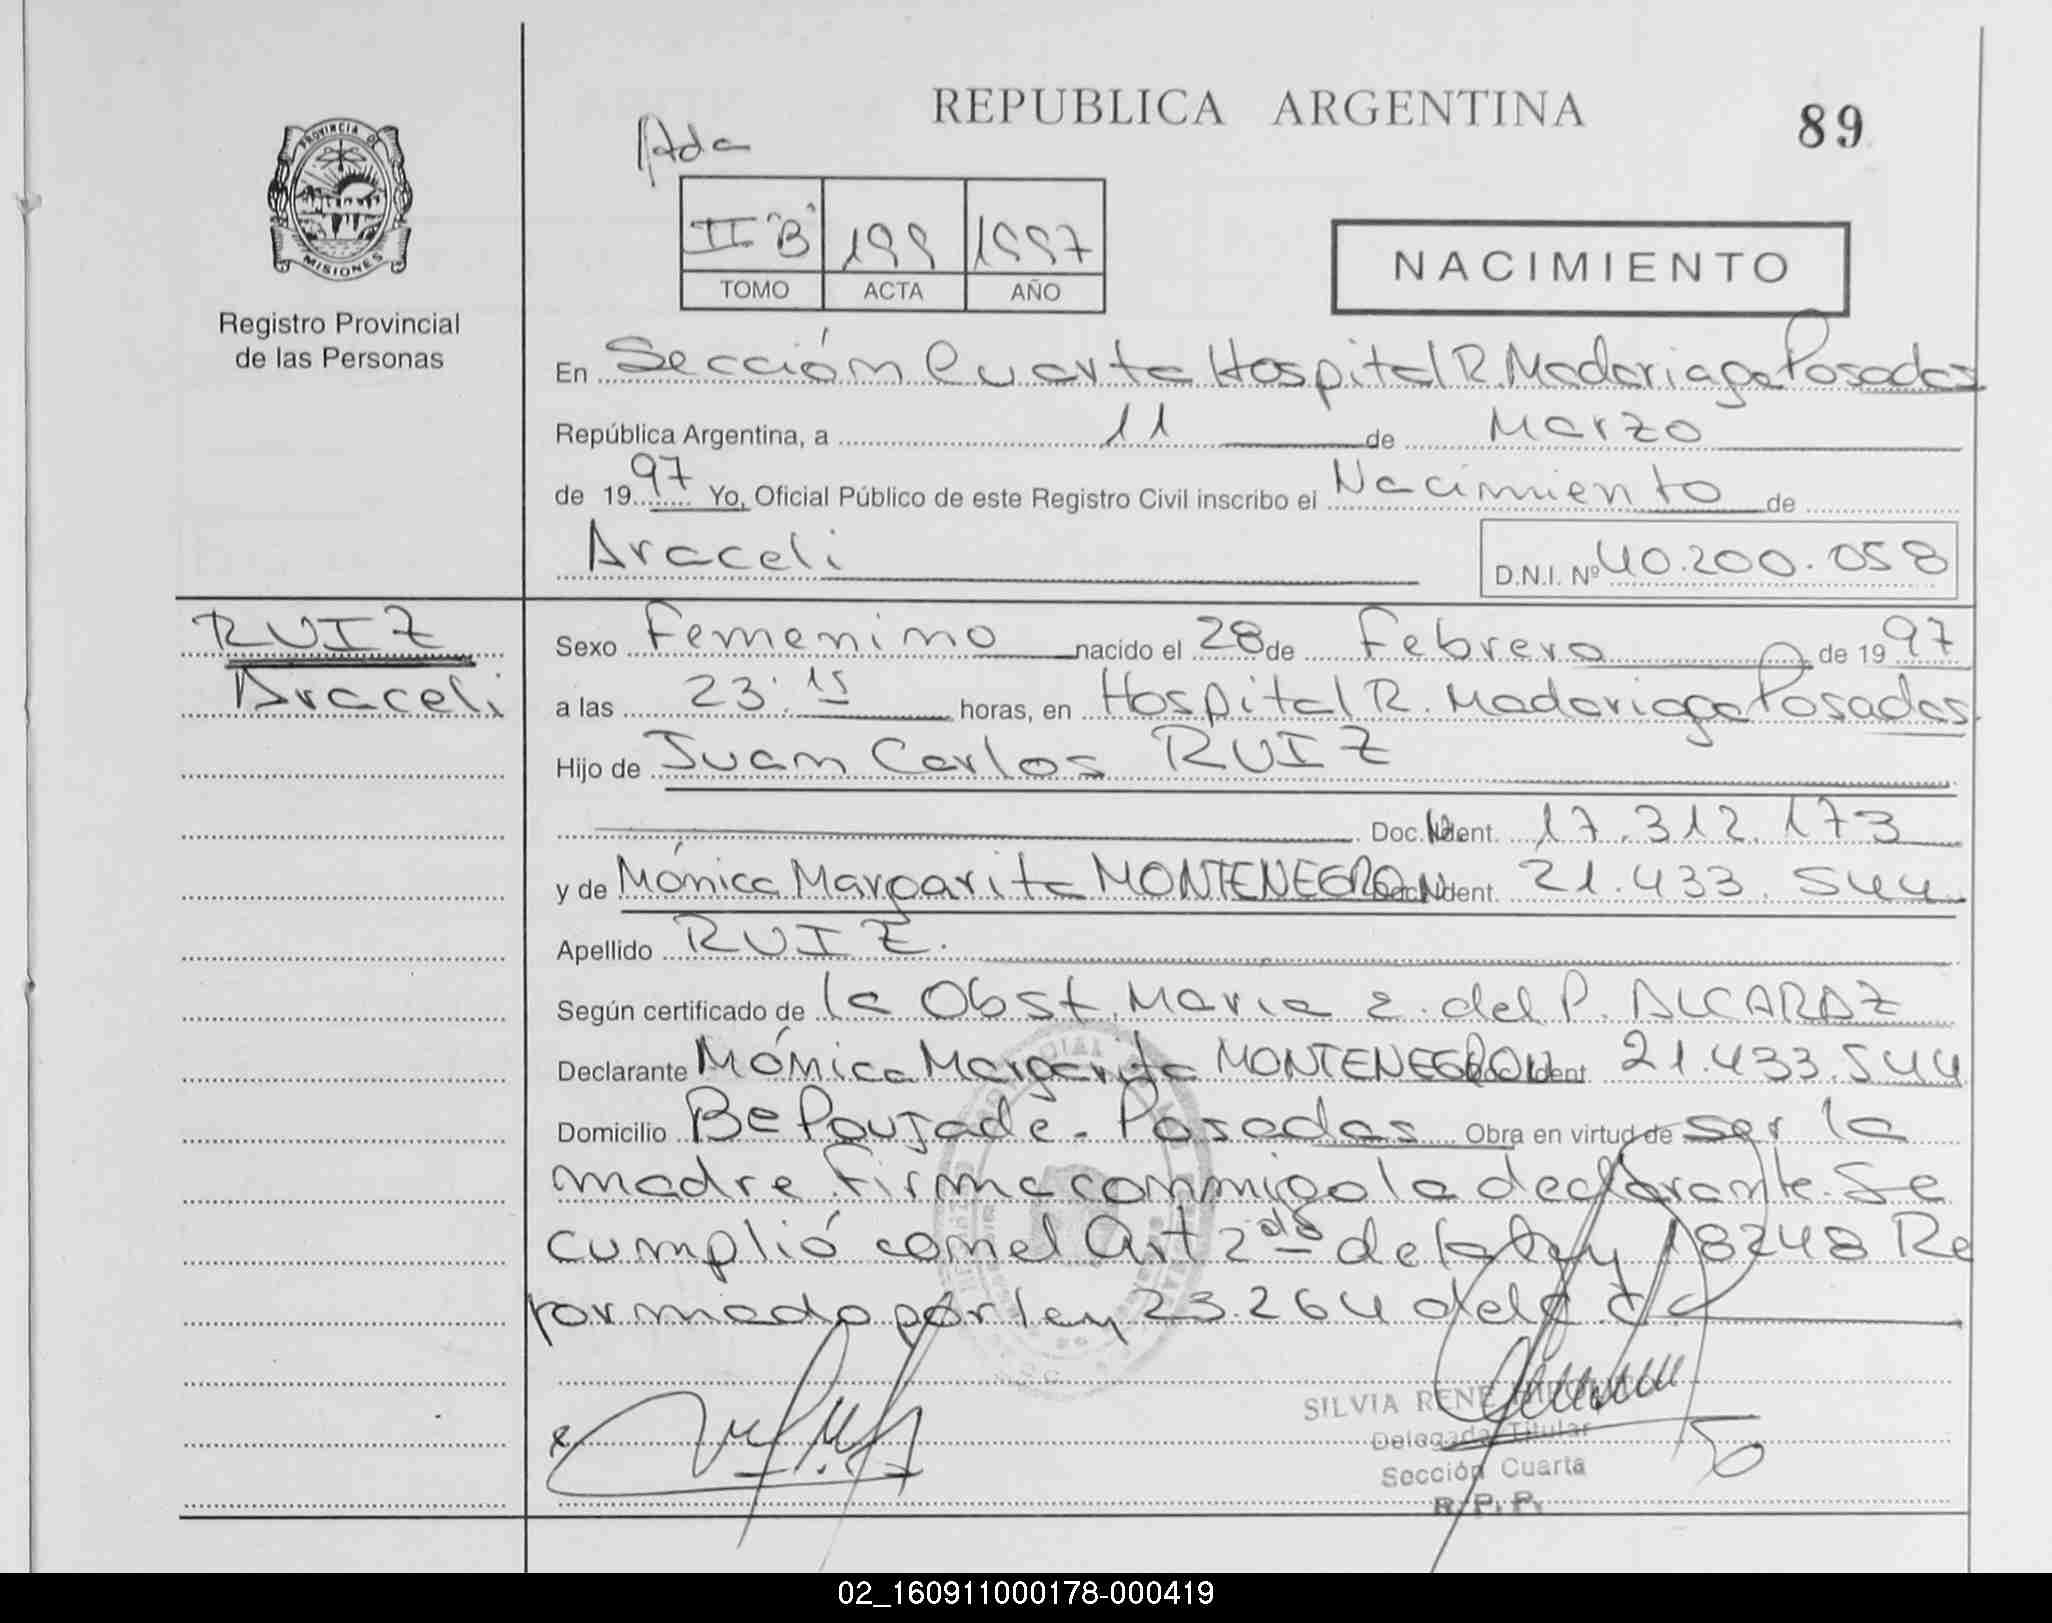 REPUBLICA ARGENTINA
89
Ada
PROVINCIA DE
MISIONES
Registro Provincial
de las Personas
II "B" 199 1997
TOMO ACTA AÑO
NACIMIENTO
En Sección Cuarta Hospital R. Madariaga Posadas
República Argentina, a 11 de Marzo
de 1997 Yo, Oficial Público de este Registro Civil inscribo el Nacimiento de
Araceli D.N.I. Nº 40.200.058
RUIZ
Araceli
Sexo Femenino nacido el 28 de Febrero de 1997
a las 23:15 horas, en Hospital R. Madariaga Posadas
Hijo de Juan Carlos RUIZ
Doc. Ident. 17.312.173
y de Mónica Margarita MONTENEGRO Doc. Ident. 21.433.544
Apellido RUIZ.
Según certificado de la Obst. Maria E. del P. ALCARAZ
Declarante Mónica Margarita MONTENEGRO Doc. Ident 21.433.544
Domicilio Bº Poujade - Posadas Obra en virtud de ser la
madre. Firma conmigo la declarante. Se
cumplió con el Art 2do de la Ley 18248 Re
formado por ley 23.264 del C.C
SILVIA RENE
Delegada Titular
Sección Cuarta
R. P. P.
02_160911000178-000419